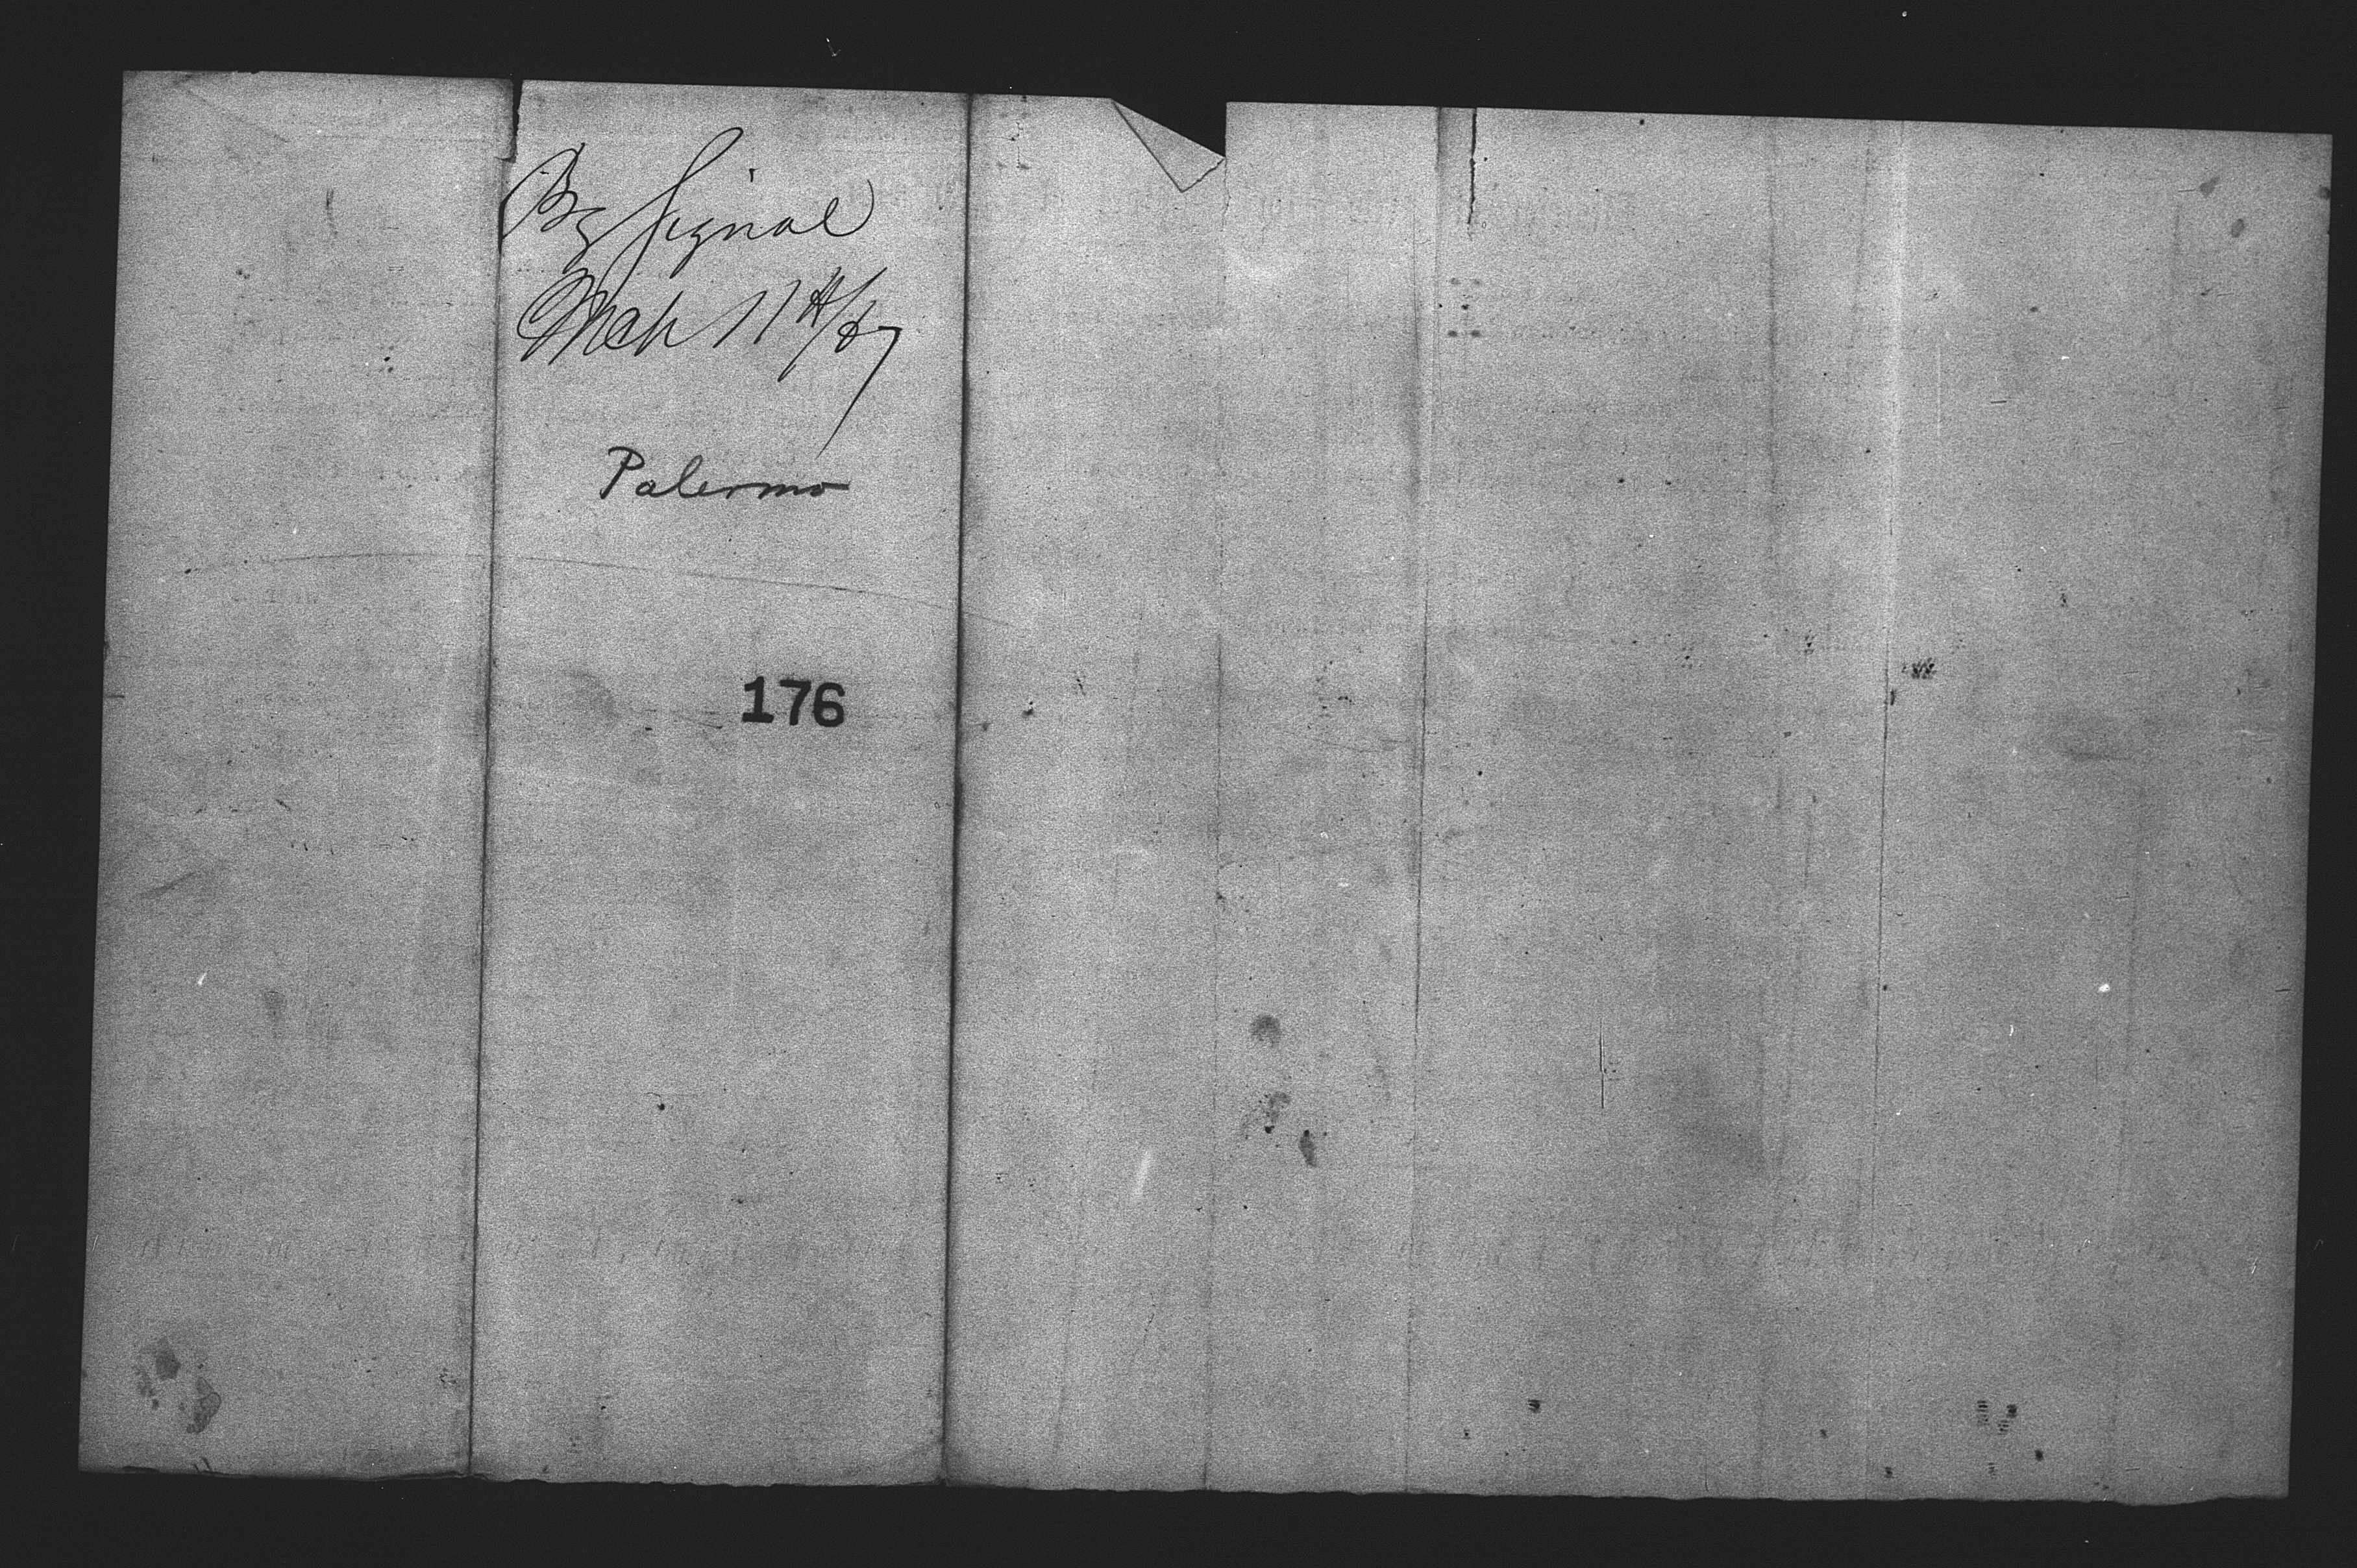 Bg Signal
Mch 11th/87
Palermo
176